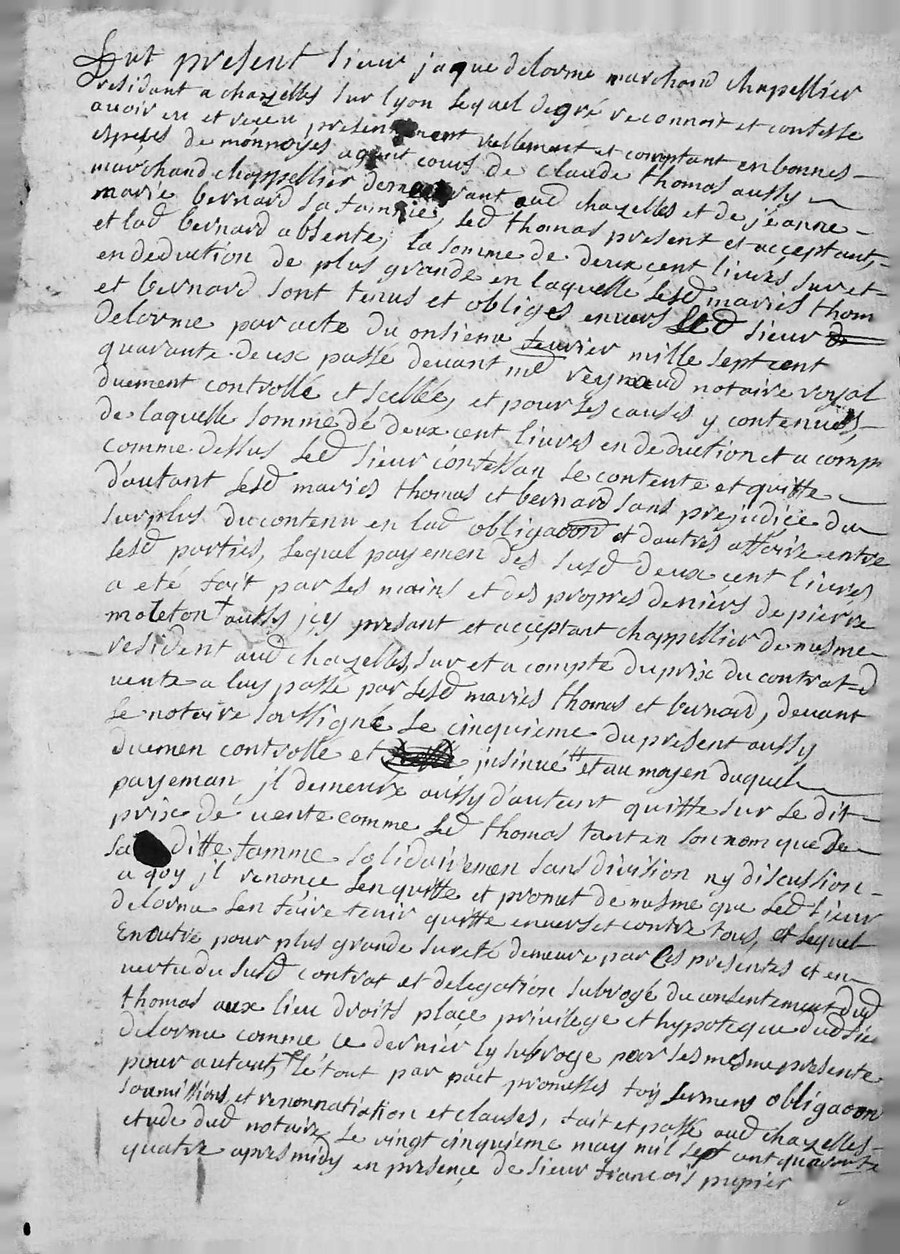 Fut present Sieur jaque delorme marchand chapellier
Residant a chazelles sur lyon lequel de gré reconnoit et confesse
avoir eu et receu presentement rellement et comptant en bonnes
especes de monnoyes ayant cours de Claude thomas aussy
marchand chappellier demeurant aud chazelles et de jéanne
marie bernard sa famme, led thomas present et acceptant,
et lad bernard absente, la somme de deux cent livres sur et
en deduction de plus grande en laquelle lesd mariés thom
et bernard sont tenus et obliges envers led sieur
delorme par acte du onsieme fevrier mille sept cent
quarante deux passé devant me reynaud notaire royal
duement controllé et scellée, et pour les causes y contenues,
de laquelle somme de deux cent livres en deduction et a comp
comme dessus led sieur confessan se contente et quitte
d'autant lesd mariés thomas et bernard sans prejudice du
surplus du contenu en lad obligaōn et d'autres affaire entre
lesd parties, lequel payemen des susd deux cent livres
a eté fait par les mains et des propres deniérs de pierre
moleton aussy jcy présant et acçeptant chappellier de mesme
resident aud chazelles, sur et a compte du prix du contrat d
vente a luy passé par lesd mariés thomas et bernard, devant
le notaire soussigné le cinquieme du present aussy
duemen controlle et jnsinué et au moyen duquel
payeman, jl demeure aussy d'autant quitte sur le dit
prix de vente comme led thomas tant en son nom que de
sa ditte famme solidairemen sans division ny discussion
a qoy jl renonce l'en quitte et promet de mesme que led sieur
delorme l'en faire tenir quitte envers et contre tous, et lequel
En outre pour plus grande sureté demeure par Ces presentes et en
vertu du susd contrat et delegation subrogé du consentement dud
thomas aux lieu droits plaçe privilege et hypoteque dud sie
delorme comme ce dernier ly subroge par les mesme presente
pour autant, le tout par pact promesses foy sermens obligaōn
soumissions et renonnatiation et clauses, fait et passé aud chazelles
etude dud notaire le vingt cinquieme may mil sept cent quarente
quatre apres midy en presençe de sieur francois pupier